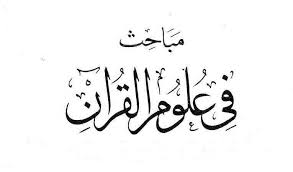 مَبَاحِث
فِي عُلُومِ القُرآنِ